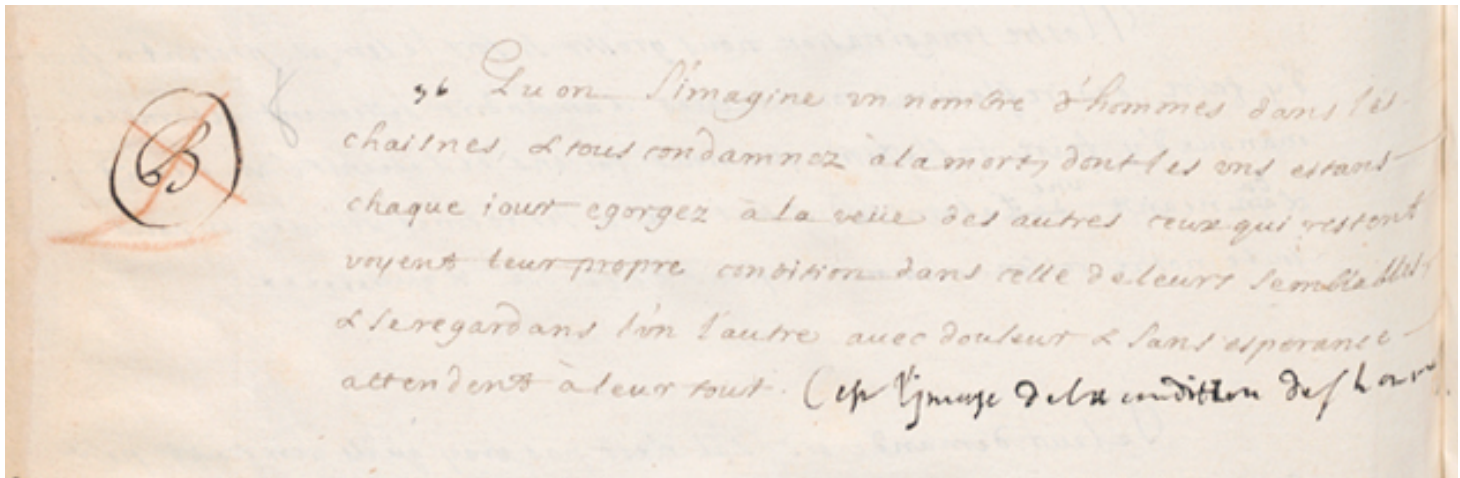 B
96 Qu'on s'imagine vn nombre d'hommes dans les
chaisnes, & tous condamnez à la mort, dont les vns estans
chaque iour egorgez à la veüe des autres ceux qui restent
voyent leur propre condition dans celle de leurs semblables,
& se regardans l'vn l'autre auec douleur & sans esperance
attendent à leur tour. C'est l'jmage de la condition des hom